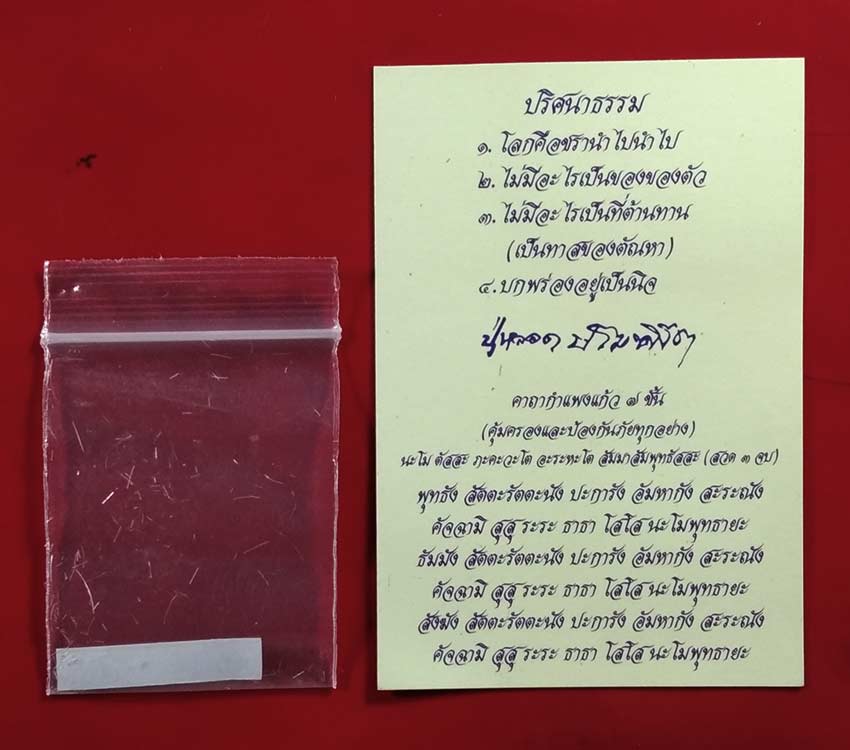 ปริศนาธรรม
๑. โลกคือชรานำไปนำไป
๒. ไม่มีอะไรเป็นของของตัว
๓. ไม่มีอะไรเป็นที่ต้านทาน
(เป็นทาสของตัณหา)
๔. บกพร่องอยู่เป็นนิจ
คาถากำแพงแก้ว ๗ ชั้น
(คุ้มครองและป้องกันภัยทุกอย่าง)
นะโม ตัสสะ ภะคะวะโต อะระหะโต สัมมาสัมพุทธัสสะ (สวด ๓ จบ)
พุทธัง สัตตะรัตตะนัง ปะการัง อัมหากัง สะระณัง
คัจฉามิ สุสุ ระระ ธาธา โสโส นะโมพุทธายะ
ธัมมัง สัตตะรัตตะนัง ปะการัง อัมหากัง สะระณัง
คัจฉามิ สุสุ ระระ ธาธา โสโส นะโมพุทธายะ
สังฆัง สัตตะรัตตะนัง ปะการัง อัมหากัง สะระณัง
คัจฉามิ สุสุ ระระ ธาธา โสโส นะโมพุทธายะ